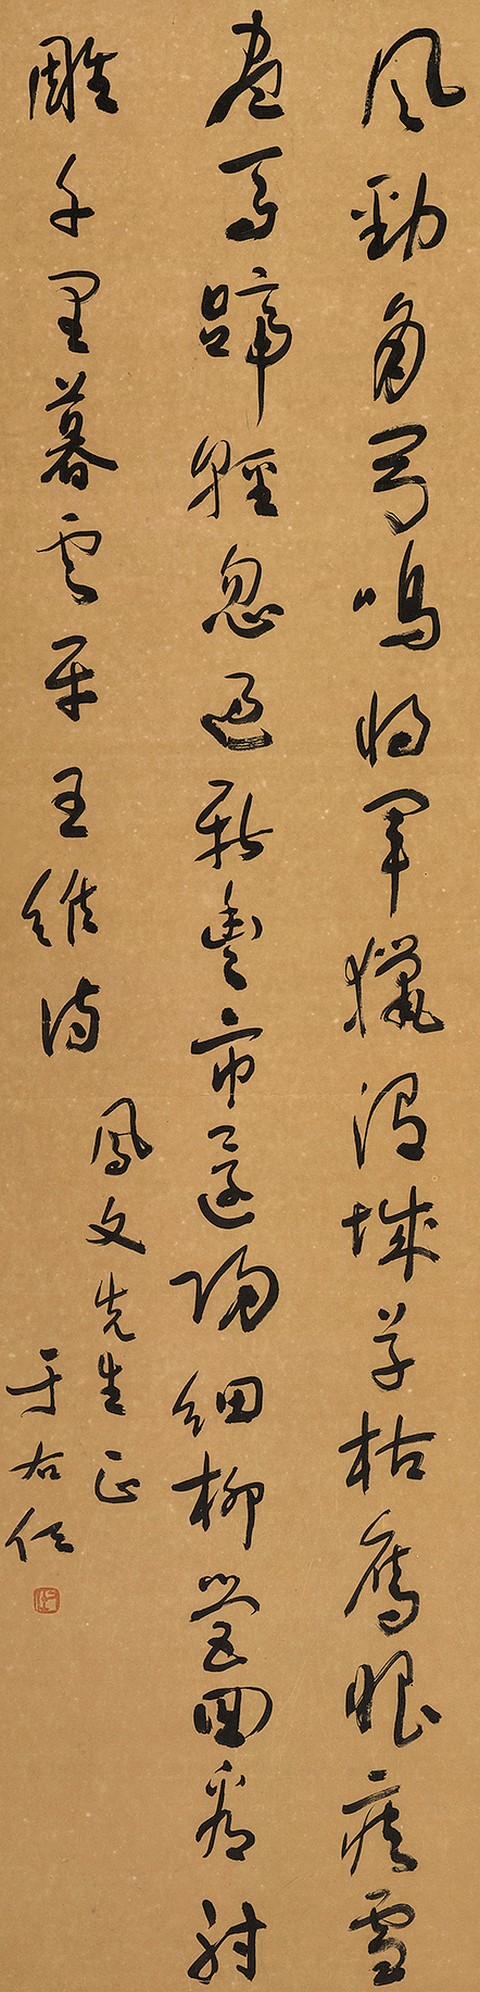 風勁角弓鳴將軍獵渭城草枯鷹眼疾雪
盡馬蹄輕忽過新豐市還歸細柳營回看射
雕千里暮雲平王維詩
鳳文先生正
于右任